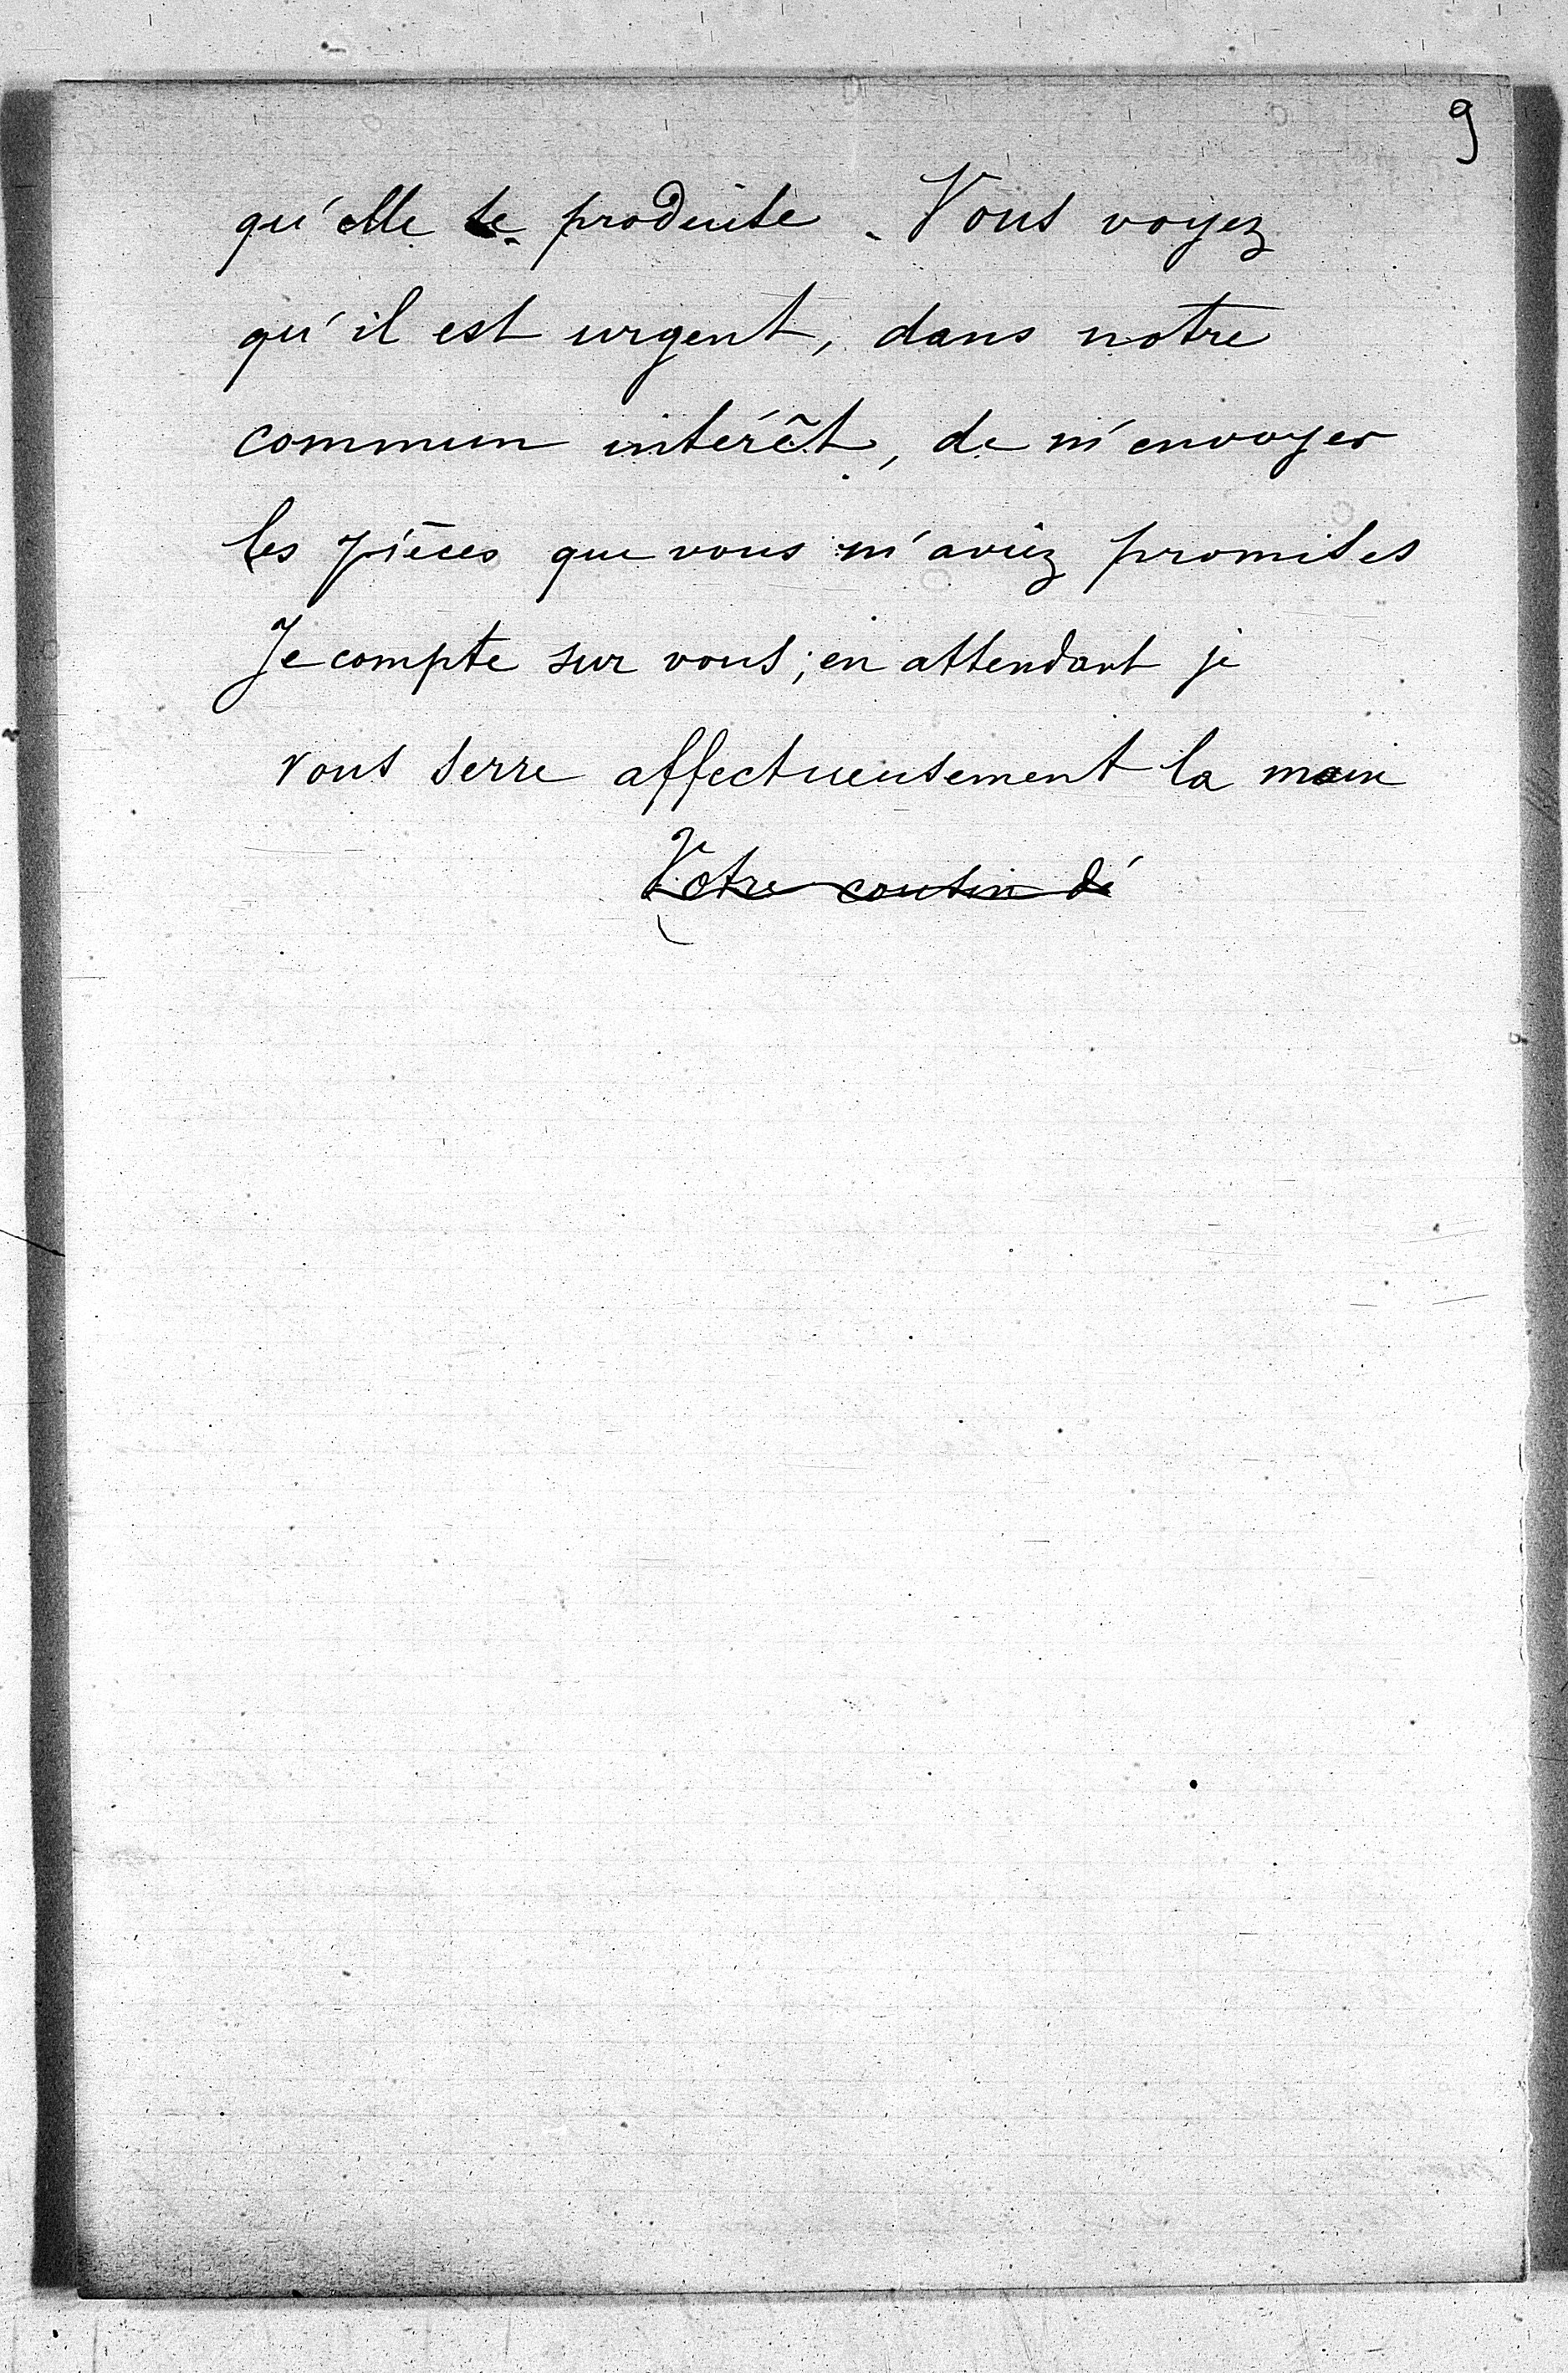 9
qu'elle se produise. Vous voyez
qu'il est urgent, dans notre
commun intérêt, de m'envoyer
les pièces que vous m'aviez promises
Je compte sur vous; en attendant je
vous serre affectueusement la main
Votre cousin dé